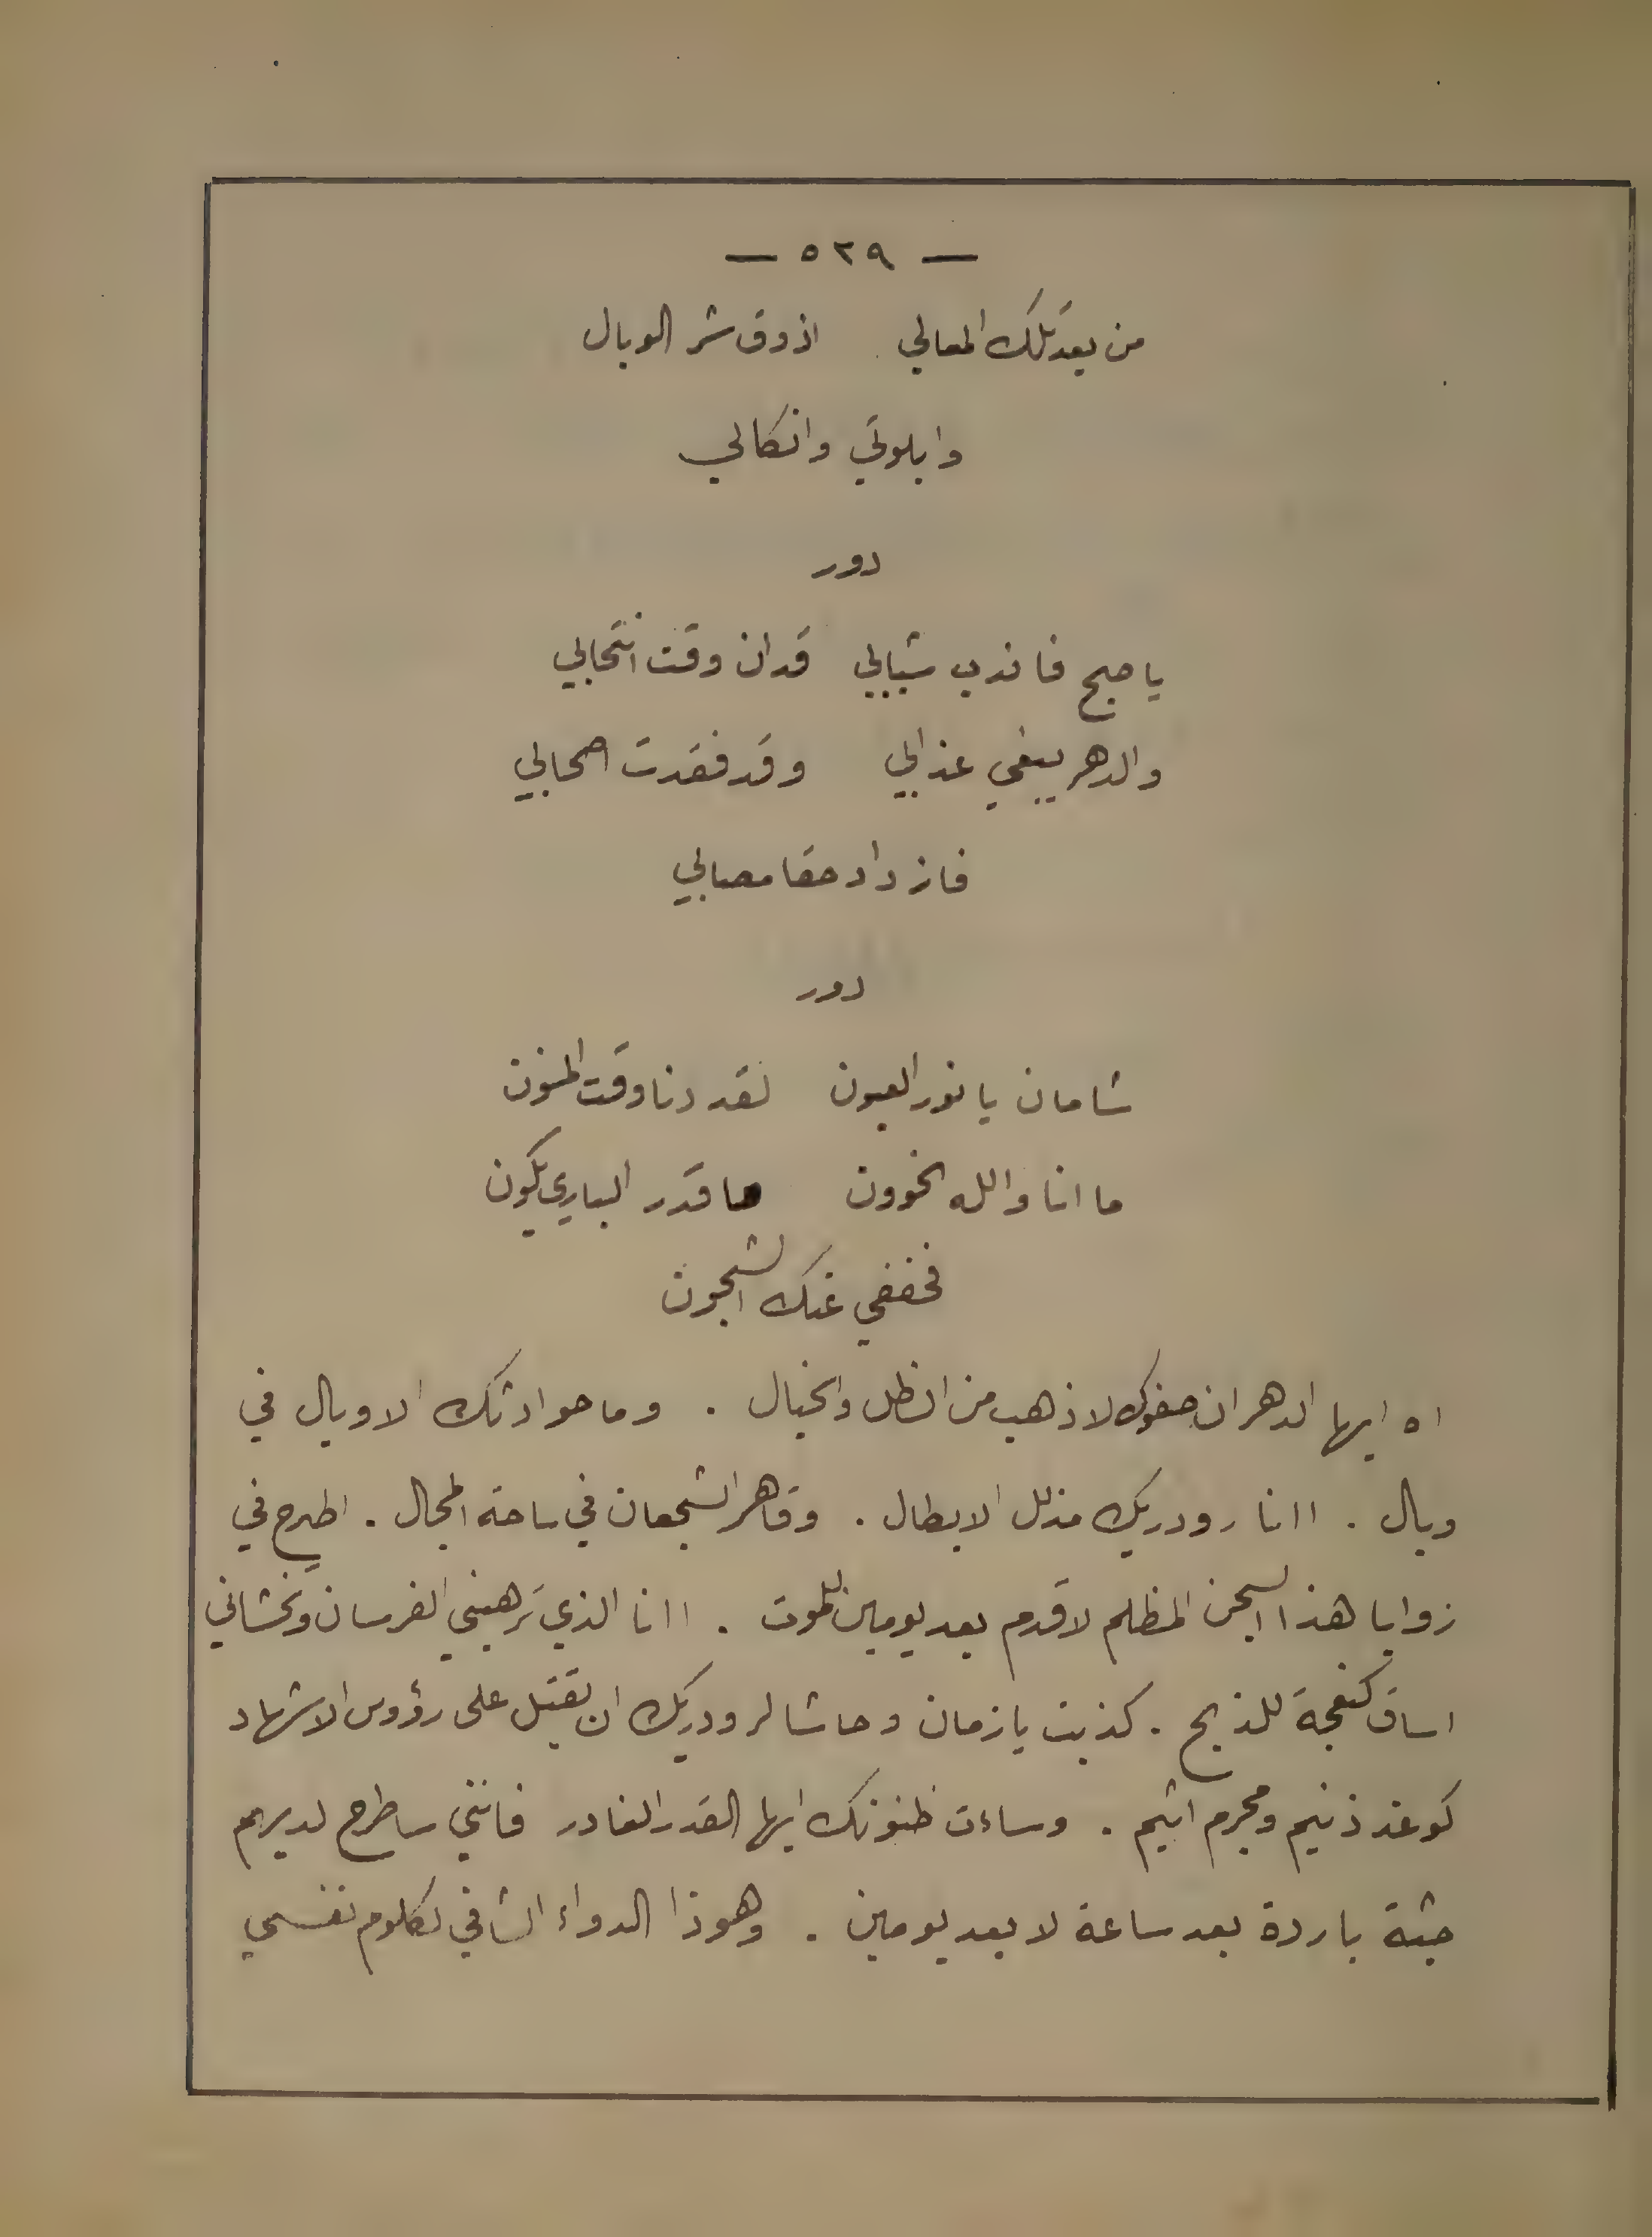 — ٥٢٩ —
من بعد تلك المعالي اذوق شر الوبال
وا بلوتي وانكالي
دور
يا صبح فاندب شبابي قد ان وقت انتحابي
والدهر يبغي عذابي وقد فقدت اصحابي
فازداد حقا مصابي
دور
شامان يا نور العيون لقد دنا وقت المنون
ما انا والله الخوون ما قدر الباري يكون
فخففي عنك الشجون
اه ايها الدهر ان صفوك لاذهب من الظل والخيال . وما حوادثك الا وبال في
وبال . اانا رودريك مذلل الابطال . وقاهر الشجعان في ساحة المجال . اطرح في
زوايا هذا السجن المظلم لاقدم بعد يومين للموت . اانا الذي ترهبني الفرسان وتخشاني
اساق كنعجة للذبح . كذبت يا زمان وحاشا لرودريك ان يقتل على رؤوس الاشهاد
كوغد ذنيم ومجرم اثيم . وساءت ظنونك ايها القدر الغادر فانني ساطرح لديهم
جثة باردة بعد ساعة لا بعد يومين . وهوذا الدواء الشافي لكلوم نفسي